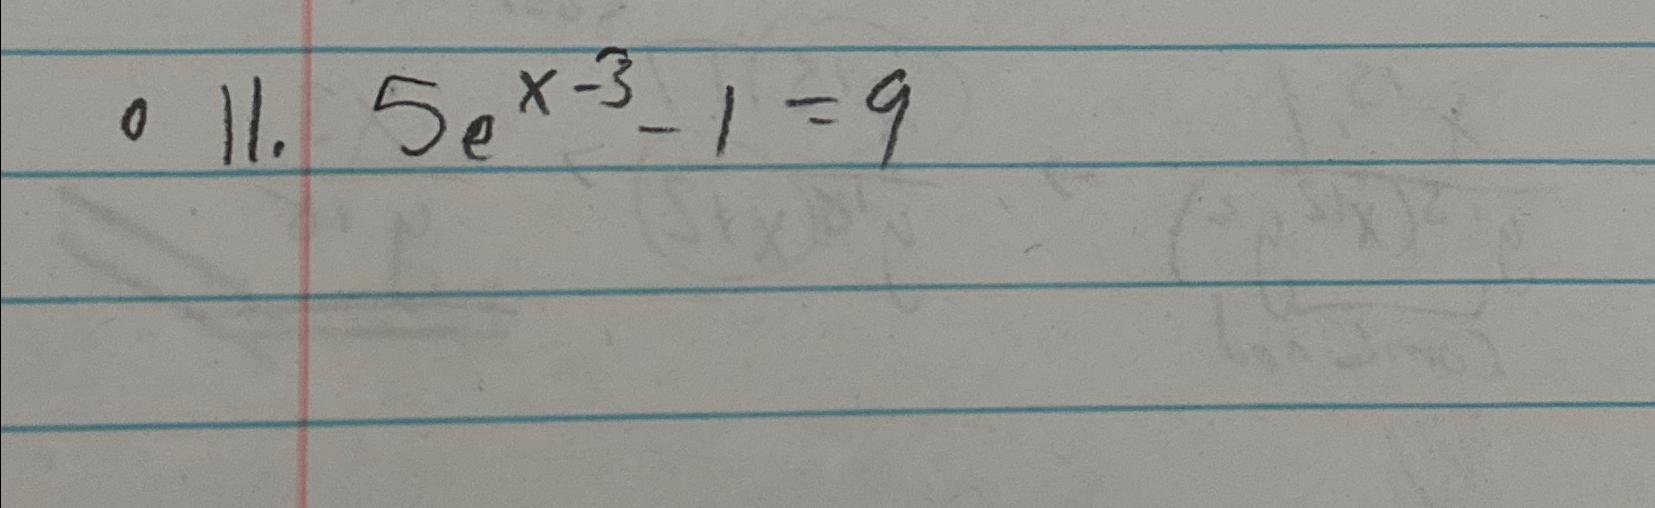 11. 5e^{x-3} - 1 = 9